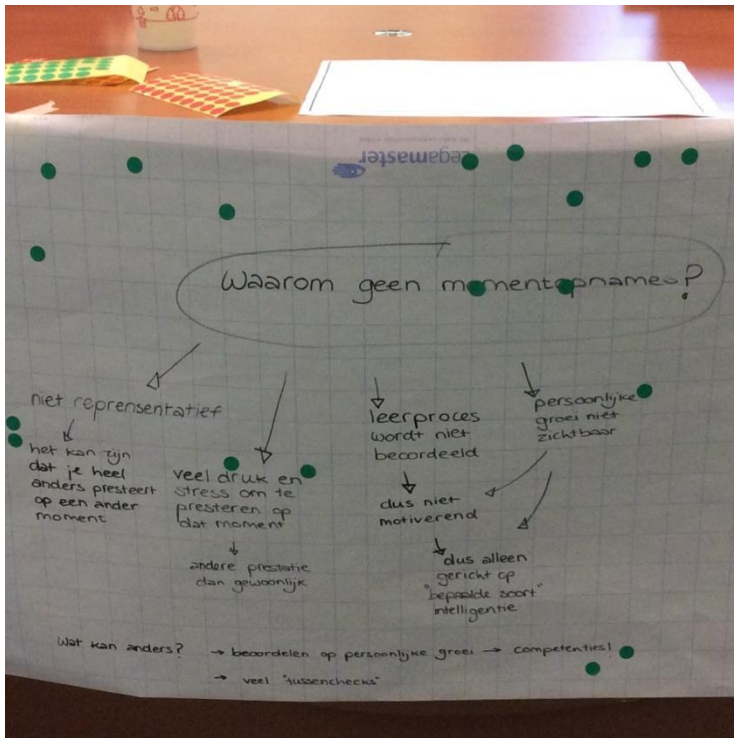 Legamaster
Waarom geen momentopname?
niet reprensentatief
het kan zijn
dat je heel
anders presteert
op een ander
moment
veel druk en
stress om te
presteren op
dat moment
andere prestatie
dan gewoonlijk
leerproces
wordt niet
beoordeeld
dus niet
motiverend
dus alleen
gericht op
"bepaalde soort"
intelligentie
persoonlijke
groei niet
zichtbaar
Wat kan anders? → beoordelen op persoonlijke groei → competenties!
→ veel "tussenchecks"